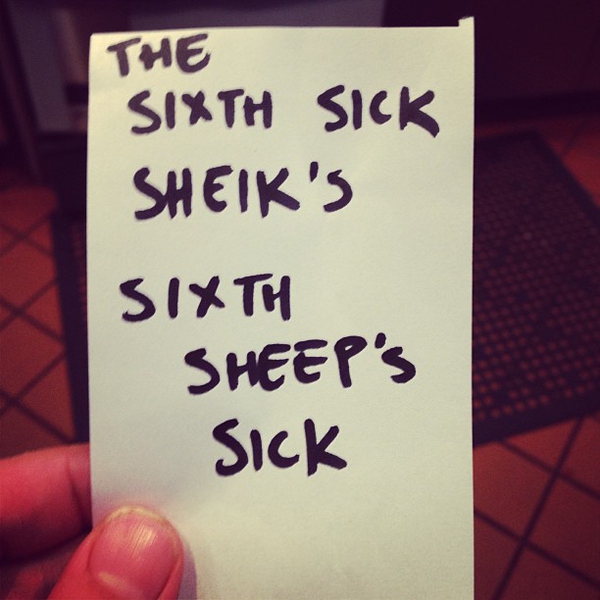 THE
SIXTH SICK
SHEIK'S
SIXTH
SHEEP'S
SICK